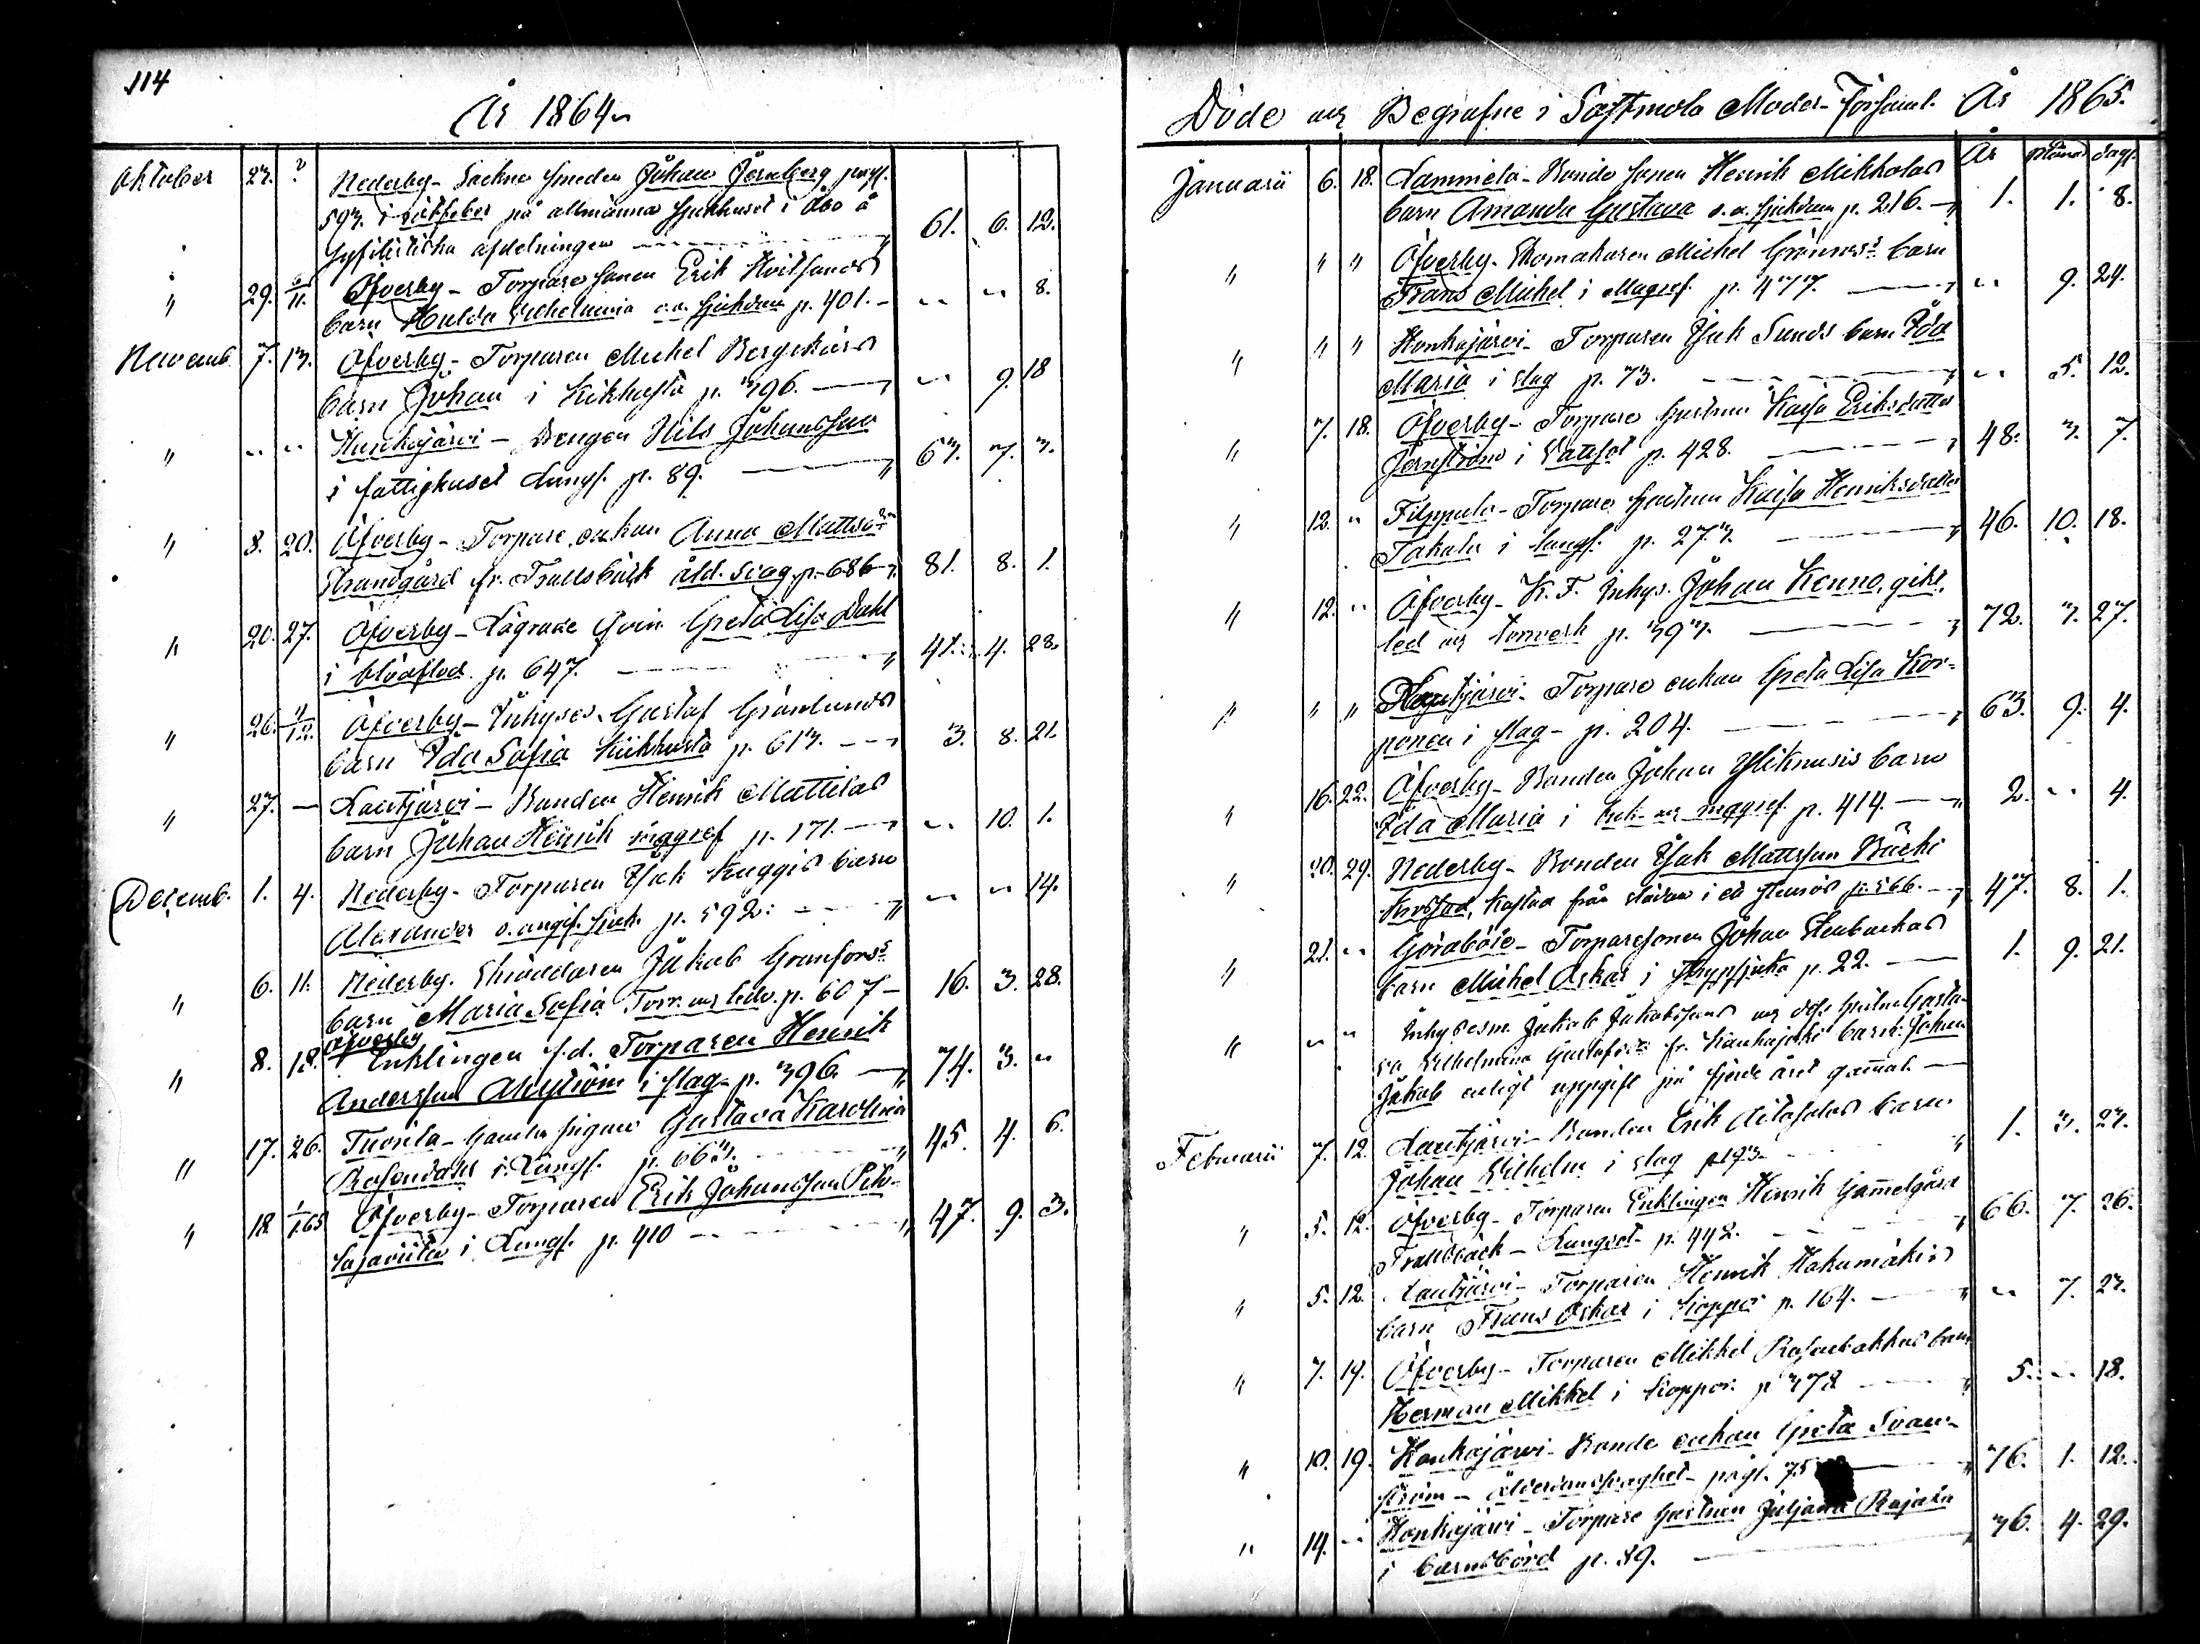 114
År 1864
Oktober 23. ? Nederby - Sockne smeden Johan Jernberg pag.
593. i rötfeber på allmänna sjukhuset i Åbo å
syfilitiska afdelningen 61. 6. 12.
" 29. 6/11. Öfverby - Torpare sonen Erik Hvitsands
barn Hulda Wilhelmina o.a. sjukdom p. 401. - " " 8.
Novemb. 7. 13. Öfverby - Torparen Michel Bergskärs
barn Johan i Kikhosta p. 396. " 9. 18
" " " Honkajärvi - Drengen Nils Johansson
i fattighuset Lungs. p. 89. 63. 7. 3.
" 8. 20. Öfverby - Torpare enkan Anna Mattsdr
Strandgård fr. Trallsbäck åld. svag. p. 686 81. 8. 1.
" 20. 27. Öfverby - Lösgrake qvin. Greta Lisa Dahl
i blodflod. p. 647. 41. 4. 28.
" 26. 4/12. Öfverby - Inhyses. Gustaf Grönlunds
barn Ida Sofia Kikhosta p. 613. 3. 8. 21.
" 27. - Lautjärvi - Bonden Henrik Mattilas
barn Johan Henrik mggref p. 171. " 10. 1.
Decemb. 1. 4. Nederby - Torparen Isak Kuggis barn
Alexander o. angif. sjuk. p. 592. " " 14.
" 6. 11. Nederby. Skräddaren Jakob Granfors
barn Maria Sofia Torrv. p. 607 - 16. 3. 28.
Öfverby
" 8. 18. Enklingen f.d. Torparen Henrik
Andersson Ahlström i slag - p. 396. 74. 3. "
" 17. 26. Tuorila - Gamla pigan Gustava Karolina
Rosendahl i Lungs. p. 663. 45. 4. 6.
" 18 1/1.65 Öfverby - Torparen Erik Johansson Pit-
kajaviita i Lungs. p. 410 47. 9. 3.
Döde och Begrafne i Sastmola Moder-Församl. År 1865.
År Månad dagr.
Januarii 6. 18. Lammela - Bonde sonen Henrik Mikkolas
barn Amanda Gustava o.a. sjukdom p. 216. - 1. 1. 8.
" " " Öfverby - Skomakaren Michel Grönroos barn
Frans Michel i Magref. p. 477. " 9. 24.
" " " Honkajärvi - Torparen Isak Sunds barn Ida
Maria i slag p. 73. " 5. 12.
" 7. 18. Öfverby - Torpare hustrun Kaisa Eriksdotter
Jernström i Vattsot p. 428. 48. 3. 7.
" 12. " Filppula - Torpare hustrun Kaisa Henriksdotter
Takala i lungs. p. 273. 46. 10. 18.
" 12. " Öfverby - K. F. Inhys. Johan Kenno, gikt,
led och torrverk p. 393. 72. 3. 27.
" " " Lautjärvi - Torpare enkan Greta Lisa Kor-
ponen i slag - p. 204. 63. 9. 4.
" 16. 22. Öfverby - Bonden Johan Yliknusis barn
Ida Maria i och mggref. p. 414. 2. " 4.
" 20. 29. Nederby - Bonden Isak Mattsson Bäcki
krossad, kastad från slädan i ett stenrös p. 566. 47. 8. 1.
" 21. " Goraböle - Torparesonen Johan Stenbackas
barn Michel Oskar i strypsjuka p. 22. 1. 9. 21.
" " " Inhysesm. Jakob Jakobssons och dess hustru Gusta-
va Wilhelmina Gustafsdr. fr. Kankajoki barn: Johan
Jakob enligt uppgift på fjerde året gammal.
Februarii 7. 12. Lautjärvi - Bonden Erik Aitasalos barn
Johan Wilhelm i slag p. 193. 1. 3. 23.
" 5. 12. Öfverby - Torparen Enklingen Henrik Gammelgård
Trallbäck - Lungsot - p. 442. 66. 7. 26.
" 5. 12. Lautjärvi - Torparen Henrik Hakumäkis
barn Frans Oskar i koppor p. 164. " 7. 23.
" 7. 19. Öfverby - Torparen Mikkel Rosenbakkas barn
Herman Mikkel i koppor. p. 378 5. " 18.
" 10. 19. Honkajärvi - Bonde enkan Greta Svan-
ström - ålderdomsvaghet - pag. 75 76. 1. 12.
" 14. " Honkajärvi - Torpare hustrun Juljana Rajala
i barnsbörd p. 59. 36. 4. 29.